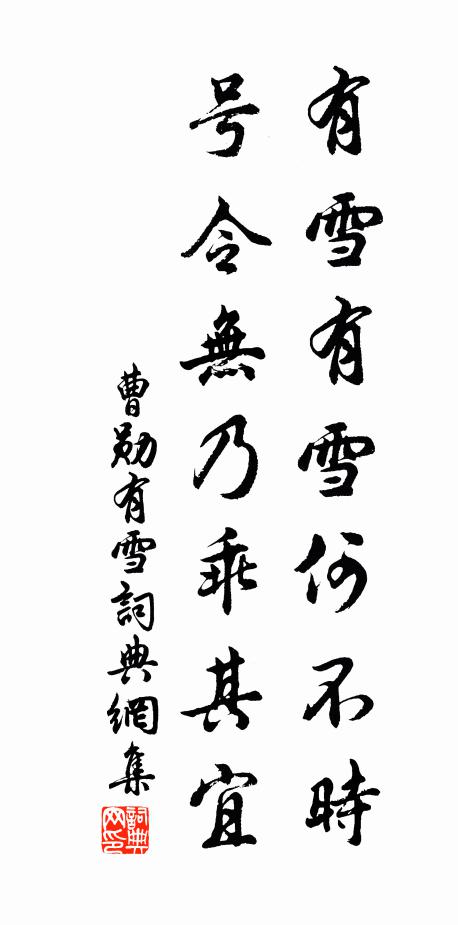 有雪有雪何不時
号令無乃乖其宜
曹勛有雪詞典網集
詞典网印